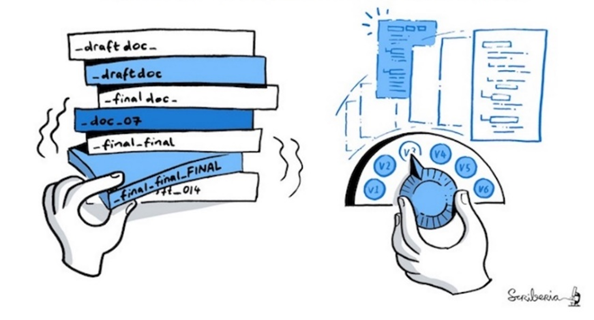 _draft doc_
_draft doc
_final doc_
_doc_07
_final_final
_final_final_FINAL
ft_014
V1
V2
V3
V4
V5
V6
Scriberia